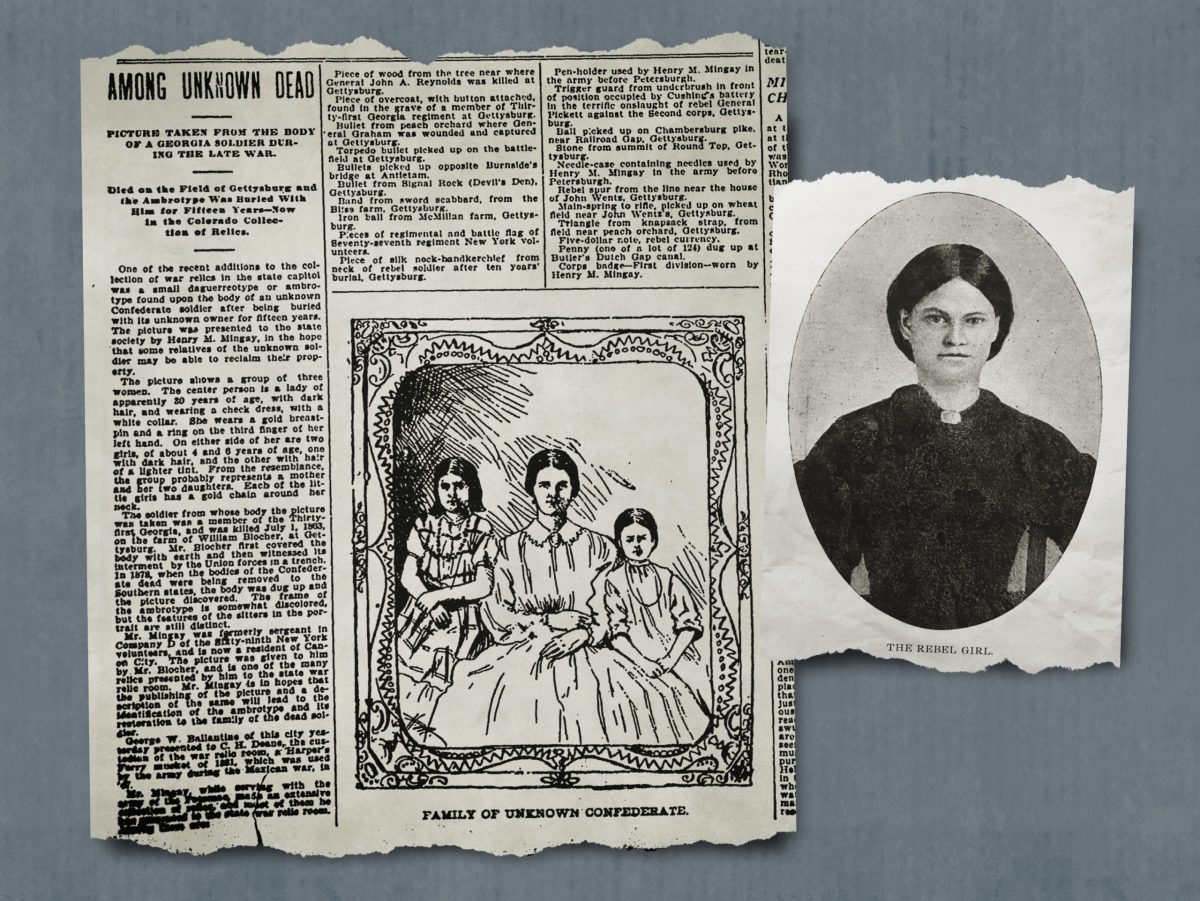 AMONG UNKNOWN DEAD
PICTURE TAKEN FROM THE BODY
OF A GEORGIA SOLDIER DUR-
ING THE LATE WAR.
Died on the Field of Gettysburg and
the Ambrotype Was Buried With
Him for Fifteen Years—Now
in the Colorado Collec-
tion of Relics.
One of the recent additions to the col-
lection of war relics in the state capitol
was a small daguerreotype or ambro-
type found upon the body of an unknown
Confederate soldier after being buried
with its unknown owner for fifteen years.
The picture was presented to the state
society by Henry M. Mingay, in the hope
that some relatives of the unknown sol-
dier may be able to reclaim their prop-
erty.
The picture shows a group of three
women. The center person is a lady of
apparently 30 years of age, with dark
hair, and wearing a check dress, with a
white collar. She wears a gold breast-
pin and a ring on the third finger of her
left hand. On either side of her are two
girls, of about 4 and 6 years of age, one
with dark hair, and the other with hair
of a lighter tint. From the resemblance,
the group probably represents a mother
and her two daughters. Each of the lit-
tle girls has a gold chain around her
neck.
The soldier from whose body the picture
was taken was a member of the Thirty-
first Georgia, and was killed July 1, 1863,
on the farm of William Blocher, at Get-
tysburg. Mr. Blocher first covered the
body with earth and then witnessed its
interment by the Union forces in a trench.
In 1878, when the bodies of the Confeder-
ate dead were being removed to the
Southern states, the body was dug up and
the picture discovered. The frame of
the ambrotype is somewhat discolored,
but the features of the sitters in the por-
trait are still distinct.
Mr. Mingay was formerly sergeant in
Company D of the Sixty-ninth New York
volunteers, and is now a resident of Can-
on City. The picture was given to him
by Mr. Blocher, and is one of the many
relics presented by him to the state war
relic room. Mr. Mingay is in hopes that
the publishing of the picture and a de-
scription of the same will lead to the
identification of the ambrotype and its
restoration to the family of the dead sol-
dier.
George W. Ballantine of this city yes-
terday presented to C. H. Deane, the cus-
todian of the war relic room, a Harper's
Ferry musket of 1831, which was used
by the army during the Mexican war, in
Mr. Mingay, while serving with the
army of the Potomac, made an extensive
collection of relics, and most of them he
has presented to the state war relic room.
Among these are:
Piece of wood from the tree near where
General John A. Reynolds was killed at
Gettysburg.
Piece of overcoat, with button attached,
found in the grave of a member of Thir-
ty-first Georgia regiment at Gettysburg.
Bullet from peach orchard where Gen-
eral Graham was wounded and captured
at Gettysburg.
Torpedo bullet picked up on the battle-
field at Gettysburg.
Bullets picked up opposite Burnside's
bridge at Antietam.
Bullet from Signal Rock (Devil's Den),
Gettysburg.
Band from sword scabbard, from the
Bliss farm, Gettysburg.
Iron ball from McMillan farm, Gettys-
burg.
Pieces of regimental and battle flag of
Seventy-seventh regiment New York vol-
unteers.
Piece of silk neck-handkerchief from
neck of rebel soldier after ten years'
burial, Gettysburg.
Pen-holder used by Henry M. Mingay in
the army before Petersburgh.
Trigger guard from underbrush in front
of position occupied by Cushing's battery
in the terrific onslaught of rebel General
Pickett against the Second corps, Gettys-
burg.
Ball picked up on Chambersburg pike,
near Railroad Gap, Gettysburg.
Stone from summit of Round Top, Get-
tysburg.
Needle-case containing needles used by
Henry M. Mingay in the army before
Petersburgh.
Rebel spur from the line near the house
of John Wentz, Gettysburg.
Main-spring to rifle, picked up on wheat
field near John Wentz's, Gettysburg.
Triangle from knapsack strap, from
field near peach orchard, Gettysburg.
Five-dollar note, rebel currency.
Penny (one of a lot of 124) dug up at
Butler's Dutch Gap canal.
Corps badge—First division—worn by
Henry M. Mingay.
FAMILY OF UNKNOWN CONFEDERATE.
THE REBEL GIRL.